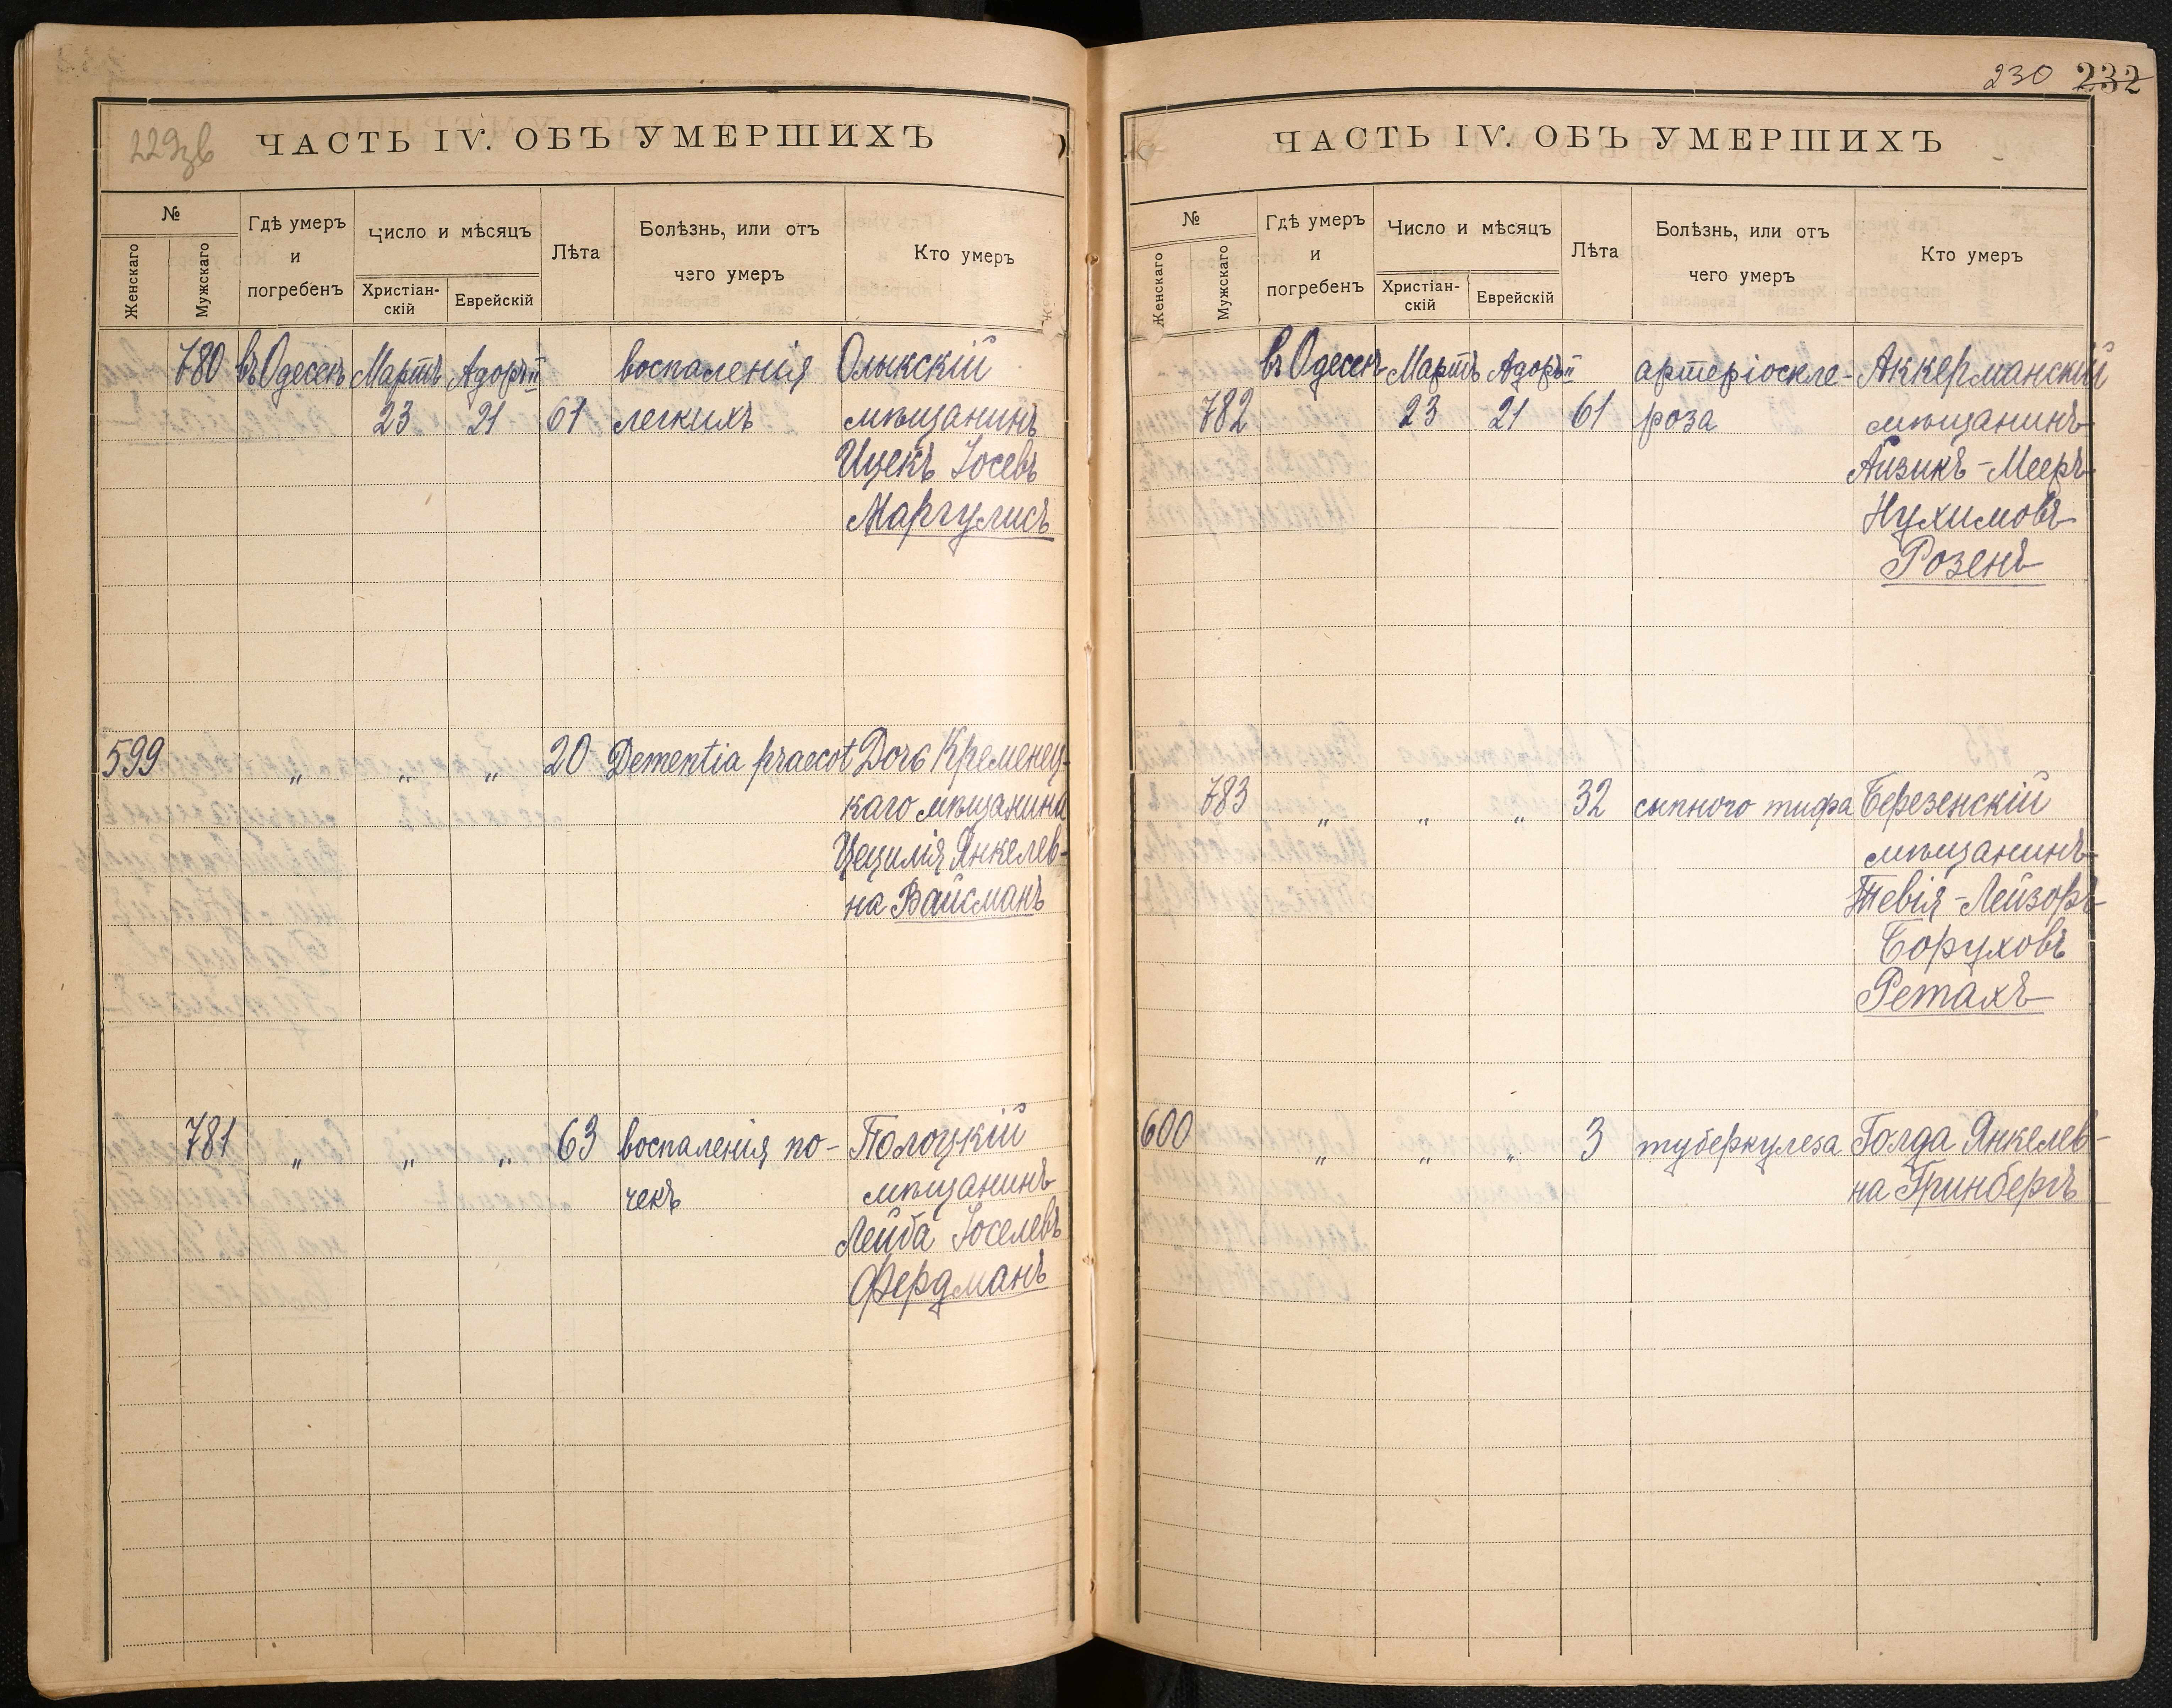 229зв
ЧАСТЬ IV. ОБЪ УМЕРШИХЪ
№
Женскаго
Мужскаго
Гдѣ умеръ
и
погребенъ
Число и мѣсяцъ
Христіан-
скій
Еврейскій
Лѣта
Болѣзнь, или отъ
чего умеръ
Кто умеръ
780 въ Одессѣ Мартъ Адоръ II воспаленія Олыкскій
23 21 61 легкихъ мѣщанинъ
Ицекъ Іосевъ
Маргулисъ
599 „ „ „ 20 Dementia praecot Дочь Кременец-
каго мѣщанина
Цецилія Янкелев-
на Вайсманъ
781 „ „ „ 63 воспаленія по- Полоцкій
чекъ мѣщанинъ
Лейба Іоселевъ
Фердманъ
230 232
ЧАСТЬ IV. ОБЪ УМЕРШИХЪ
№
Женскаго
Мужскаго
Гдѣ умеръ
и
погребенъ
Число и мѣсяцъ
Христіан-
скій
Еврейскій
Лѣта
Болѣзнь, или отъ
чего умеръ
Кто умеръ
въ Одессѣ Мартъ Адоръ II артеріоскле- Аккерманскій
782 23 21 61 роза мѣщанинъ
Айзикъ-Мееръ
Нухимовъ
Розенъ
783 „ „ „ 32 сыпного тифа Березенскій
мѣщанинъ
Тевія-Лейзоръ
Боруховъ
Ретахъ
600 „ „ „ 3 туберкулеза Голда Янкелев-
на Гринбергъ